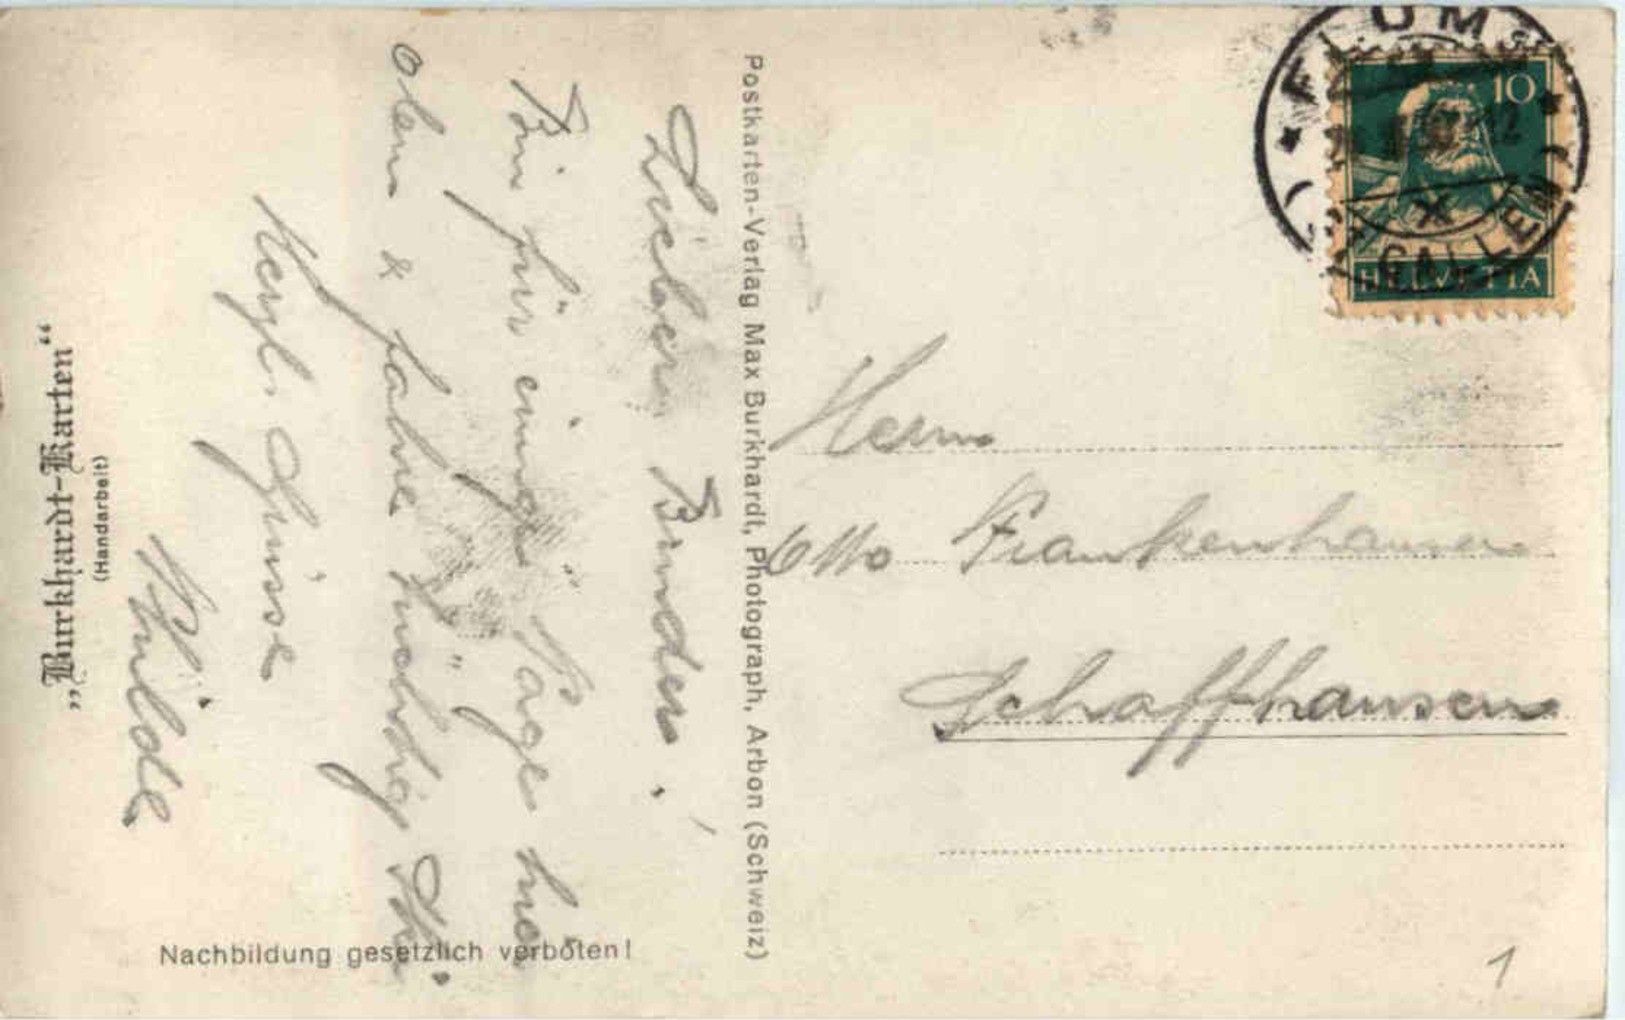 Lieber Bruder!
Bin für einige Tage hier
oben & fahre tüchtig Ski.
Herzl. Grüsse
Hilde
„Burkhardt-Karten“
(Handarbeit)
Nachbildung gesetzlich verboten!
Postkarten-Verlag Max Burkhardt, Photograph, Arbon (Schweiz)
FLUMS
(ST. GALLEN)
10
HELVETIA
Herrn
Otto Frankenhauser
Schaffhausen
1